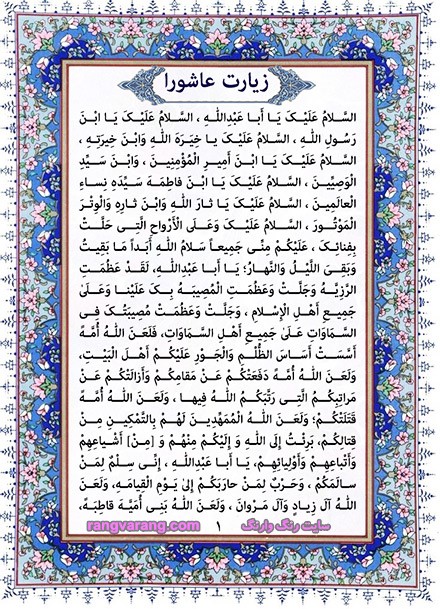 زیارت عاشورا
السَّلامُ عَلَیْکَ یَا أَبا عَبْدِاللّٰهِ ، السَّلامُ عَلَیْکَ یَا ابْنَ
رَسُولِ اللّٰهِ ، السَّلامُ عَلَیْکَ یا خِیَرَةَ اللّٰهِ وَابْنَ خِیرَتِهِ ،
السَّلامُ عَلَیْکَ یَا ابْنَ أَمِیرِ الْمُؤْمِنِینَ ، وَابْنَ سَیِّدِ
الْوَصِیِّینَ ، السَّلامُ عَلَیْکَ یَا ابْنَ فاطِمَهَ سَیِّدَهِ نِساءِ
الْعالَمِینَ ، السَّلامُ عَلَیْکَ یَا ثارَ اللّٰهِ وَابْنَ ثارِهِ وَالْوِتْرَ
الْمَوْتُورَ ، السَّلامُ عَلَیْکَ وَعَلَی الْأَرْواحِ الَّتِی حَلَّتْ
بِفِنائِکَ ، عَلَیْکُمْ مِنِّی جَمِیعاً سَلامُ اللّٰهِ أَبَداً مَا بَقِیتُ
وَبَقِیَ اللَّیْلُ وَالنَّهارُ؛ یَا أَبا عَبْدِاللّٰهِ، لَقَدْ عَظُمَتِ
الرَّزِیَّهُ وَجَلَّتْ وَعَظُمَتِ الْمُصِیبَهُ بِکَ عَلَیْنا وَعَلَیٰ
جَمِیعِ أَهْلِ الْإِسْلامِ ، وَجَلَّتْ وَعَظُمَتْ مُصِیبَتُکَ فِی
السَّمَاوَاتِ عَلَیٰ جَمِیعِ أَهْلِ السَّمَاوَاتِ، فَلَعَنَ اللّٰهُ أُمَّهً
أَسَّسَتْ أَسَاسَ الظُّلْمِ وَالْجَوْرِ عَلَیْکُمْ أَهْلَ الْبَیْتِ،
وَلَعَنَ اللّٰهُ أُمَّهً دَفَعَتْکُمْ عَنْ مَقامِکُمْ وَأَزالَتْکُمْ عَنْ
مَراتِبِکُمُ الَّتِی رَتَّبَکُمُ اللّٰهُ فِیها ، وَلَعَنَ اللّٰهُ أُمَّهً
قَتَلَتْکُمْ؛ وَلَعَنَ اللّٰهُ الْمُمَهِّدِینَ لَهُمْ بِالتَّمْکِینِ مِنْ
قِتالِکُمْ، بَرِئْتُ إِلَی اللّٰهِ وَ إِلَیْکُمْ مِنْهُمْ وَ [مِنْ] أَشْیاعِهِمْ
وَأَتْباعِهِمْ وَأَوْلِیائِهِمْ، یَا أَبا عَبْدِاللّٰهِ ، إِنِّی سِلْمٌ لِمَنْ
سالَمَکُمْ ، وَحَرْبٌ لِمَنْ حارَبَکُمْ إِلیٰ یَوْمِ الْقِیامَهِ، وَلَعَنَ
اللّٰهُ آلَ زِیادٍ وَآلَ مَرْوانَ ، وَلَعَنَ اللّٰهُ بَنِی أُمَیَّهَ قاطِبَهً،
سایت رنگ وارنگ ۱ rangvarang.com